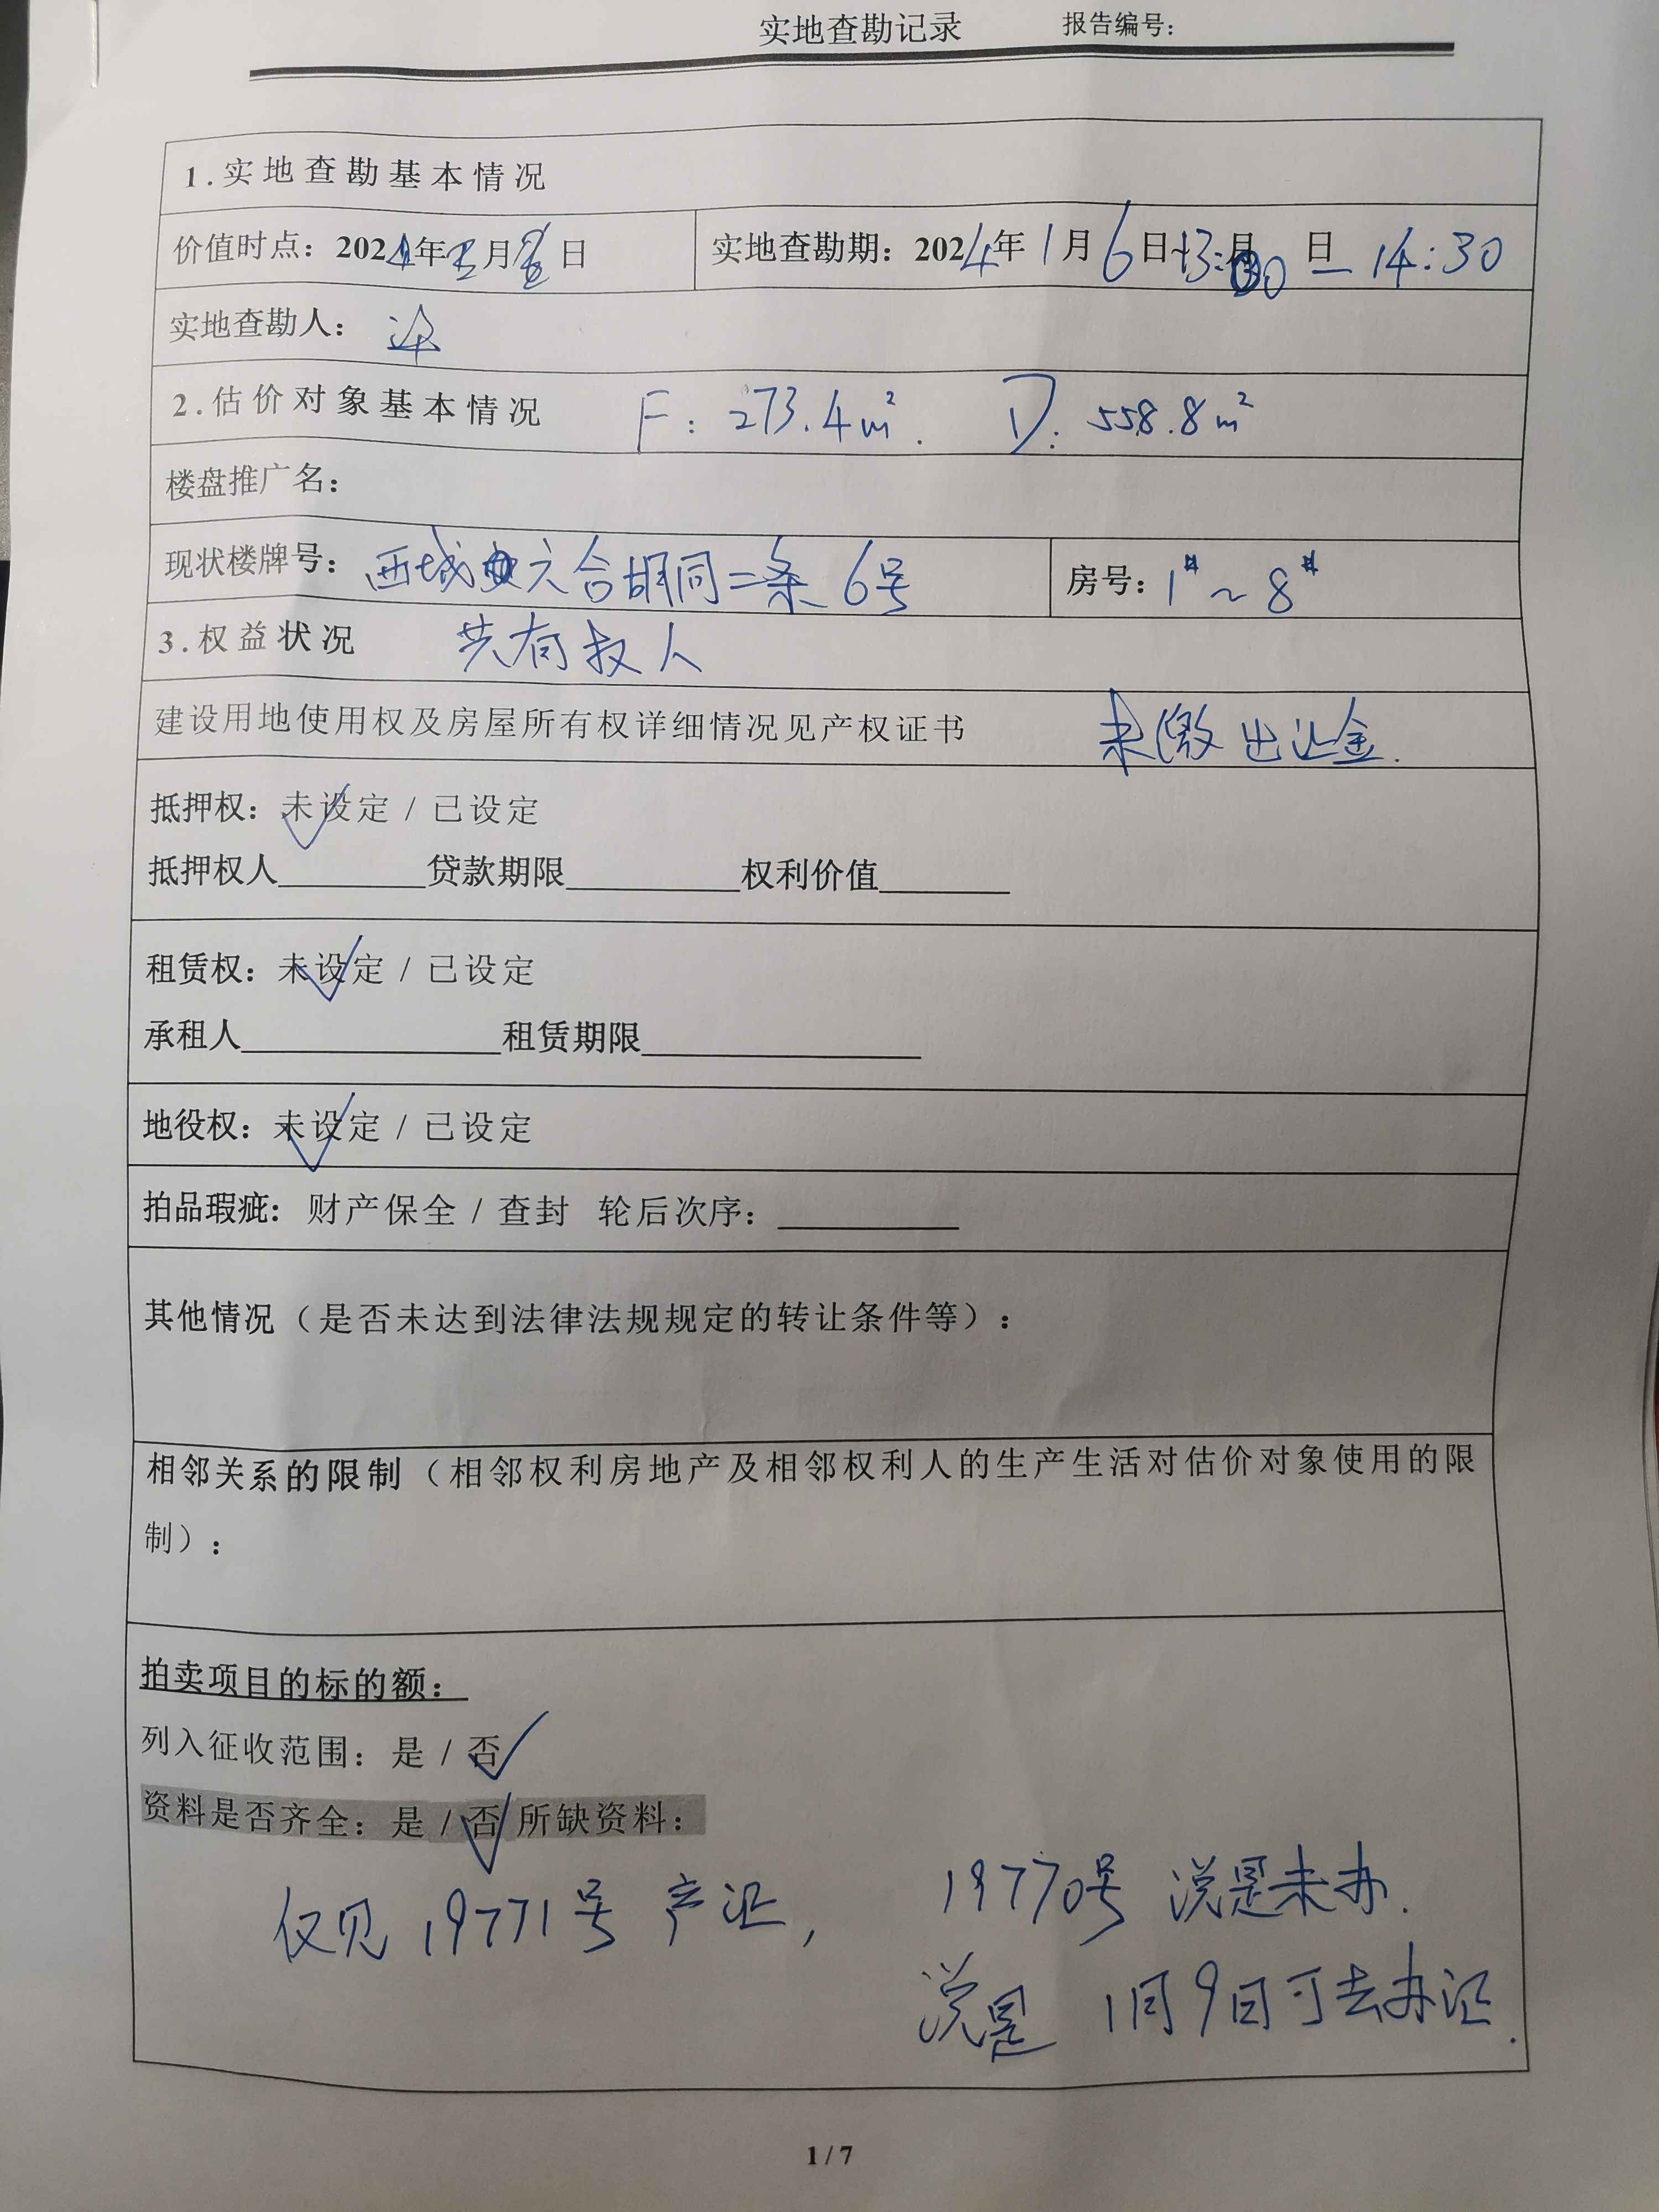 实地查勘记录 报告编号：
1.实地查勘基本情况
价值时点：2024年 月 日 实地查勘期：2024年1月6日13:00 日—14:30
实地查勘人：
2.估价对象基本情况 F：273.4m². D：558.8m²
楼盘推广名：
现状楼牌号：西城 六合胡同二条6号 房号：1#～8#
3.权益状况 共有权人
建设用地使用权及房屋所有权详细情况见产权证书 未缴出让金.
抵押权：未设定 / 已设定
抵押权人________贷款期限________权利价值________
租赁权：未设定 / 已设定
承租人________租赁期限________
地役权：未设定 / 已设定
拍品瑕疵：财产保全 / 查封 轮后次序：________
其他情况（是否未达到法律法规规定的转让条件等）：
相邻关系的限制（相邻权利房地产及相邻权利人的生产生活对估价对象使用的限
制）：
拍卖项目的标的额：
列入征收范围：是 / 否√
资料是否齐全：是 / 否√ 所缺资料：
仅见19771号产证， 19770号说是未办.
说是1月9日可去办证.
1 / 7